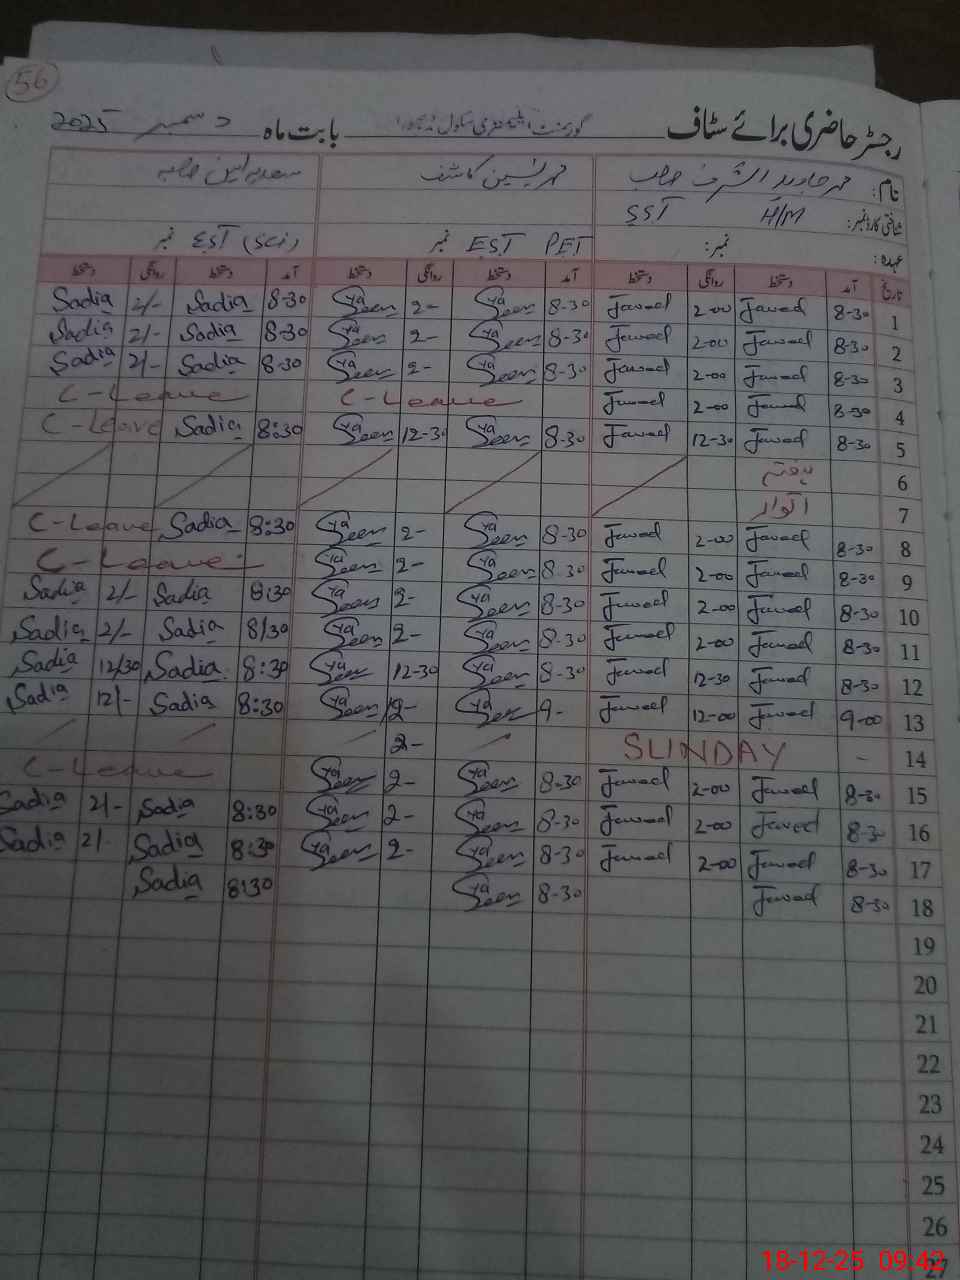 56
رجسٹر حاضری برائے سٹاف گورنمنٹ ایلیمنٹری سکول بابت ماہ دسمبر 2025
نام: محمد جاوید اشرف صاحب محمد یٰسین کاشف سعدیہ امین صاحبہ
شناختی کارڈ نمبر: H/M SST
عہدہ: نمبر: PET EST نمبر EST (Sci) نمبر
تاریخ آمد دستخط روانگی دستخط آمد دستخط روانگی دستخط آمد دستخط روانگی دستخط
1 8-30 Javed 2-00 Javed 8-30 Yaseen 2- Yaseen 8-30 Sadia 2/- Sadia
2 8-30 Javed 2-00 Javed 8-30 Yaseen 2- Yaseen 8-30 Sadia 2/- Sadia
3 8-30 Javed 2-00 Javed 8-30 Yaseen 2- Yaseen 8-30 Sadia 2/- Sadia
4 8-30 Javed 2-00 Javed C-Leave C-Leave
5 8-30 Javed 12-30 Javed 8-30 Yaseen 12-30 Yaseen 8:30 Sadia C-Leave
6 ہفتہ
7 اتوار
8 8-30 Javed 2-00 Javed 8-30 Yaseen 2- Yaseen 8:30 Sadia C-Leave
9 8-30 Javed 2-00 Javed 8.30 Yaseen 2- Yaseen C-Leave
10 8-30 Javed 2-00 Javed 8-30 Yaseen 2- Yaseen 8:30 Sadia 2/- Sadia
11 8-30 Javed 2-00 Javed 8-30 Yaseen 2- Yaseen 8/30 Sadia 2/- Sadia
12 8-30 Javed 12-30 Javed 8-30 Yaseen 12-30 Yaseen 8:30 Sadia 12/30 Sadia
13 9-00 Javed 12-00 Javed 9- Yaseen 12- Yaseen 8:30 Sadia 12/- Sadia
14 - SUNDAY 2-
15 8-30 Javed 2-00 Javed 8-30 Yaseen 2- Yaseen C-Leave
16 8-30 Javed 2-00 Javed 8-30 Yaseen 2- Yaseen 8:30 Sadia 2/- Sadia
17 8-30 Javed 2-00 Javed 8-30 Yaseen 2- Yaseen 8:30 Sadia 2/- Sadia
18 8-30 Javed 8-30 Yaseen 8:30 Sadia
19
20
21
22
23
24
25
26
27
18-12-25 09:42